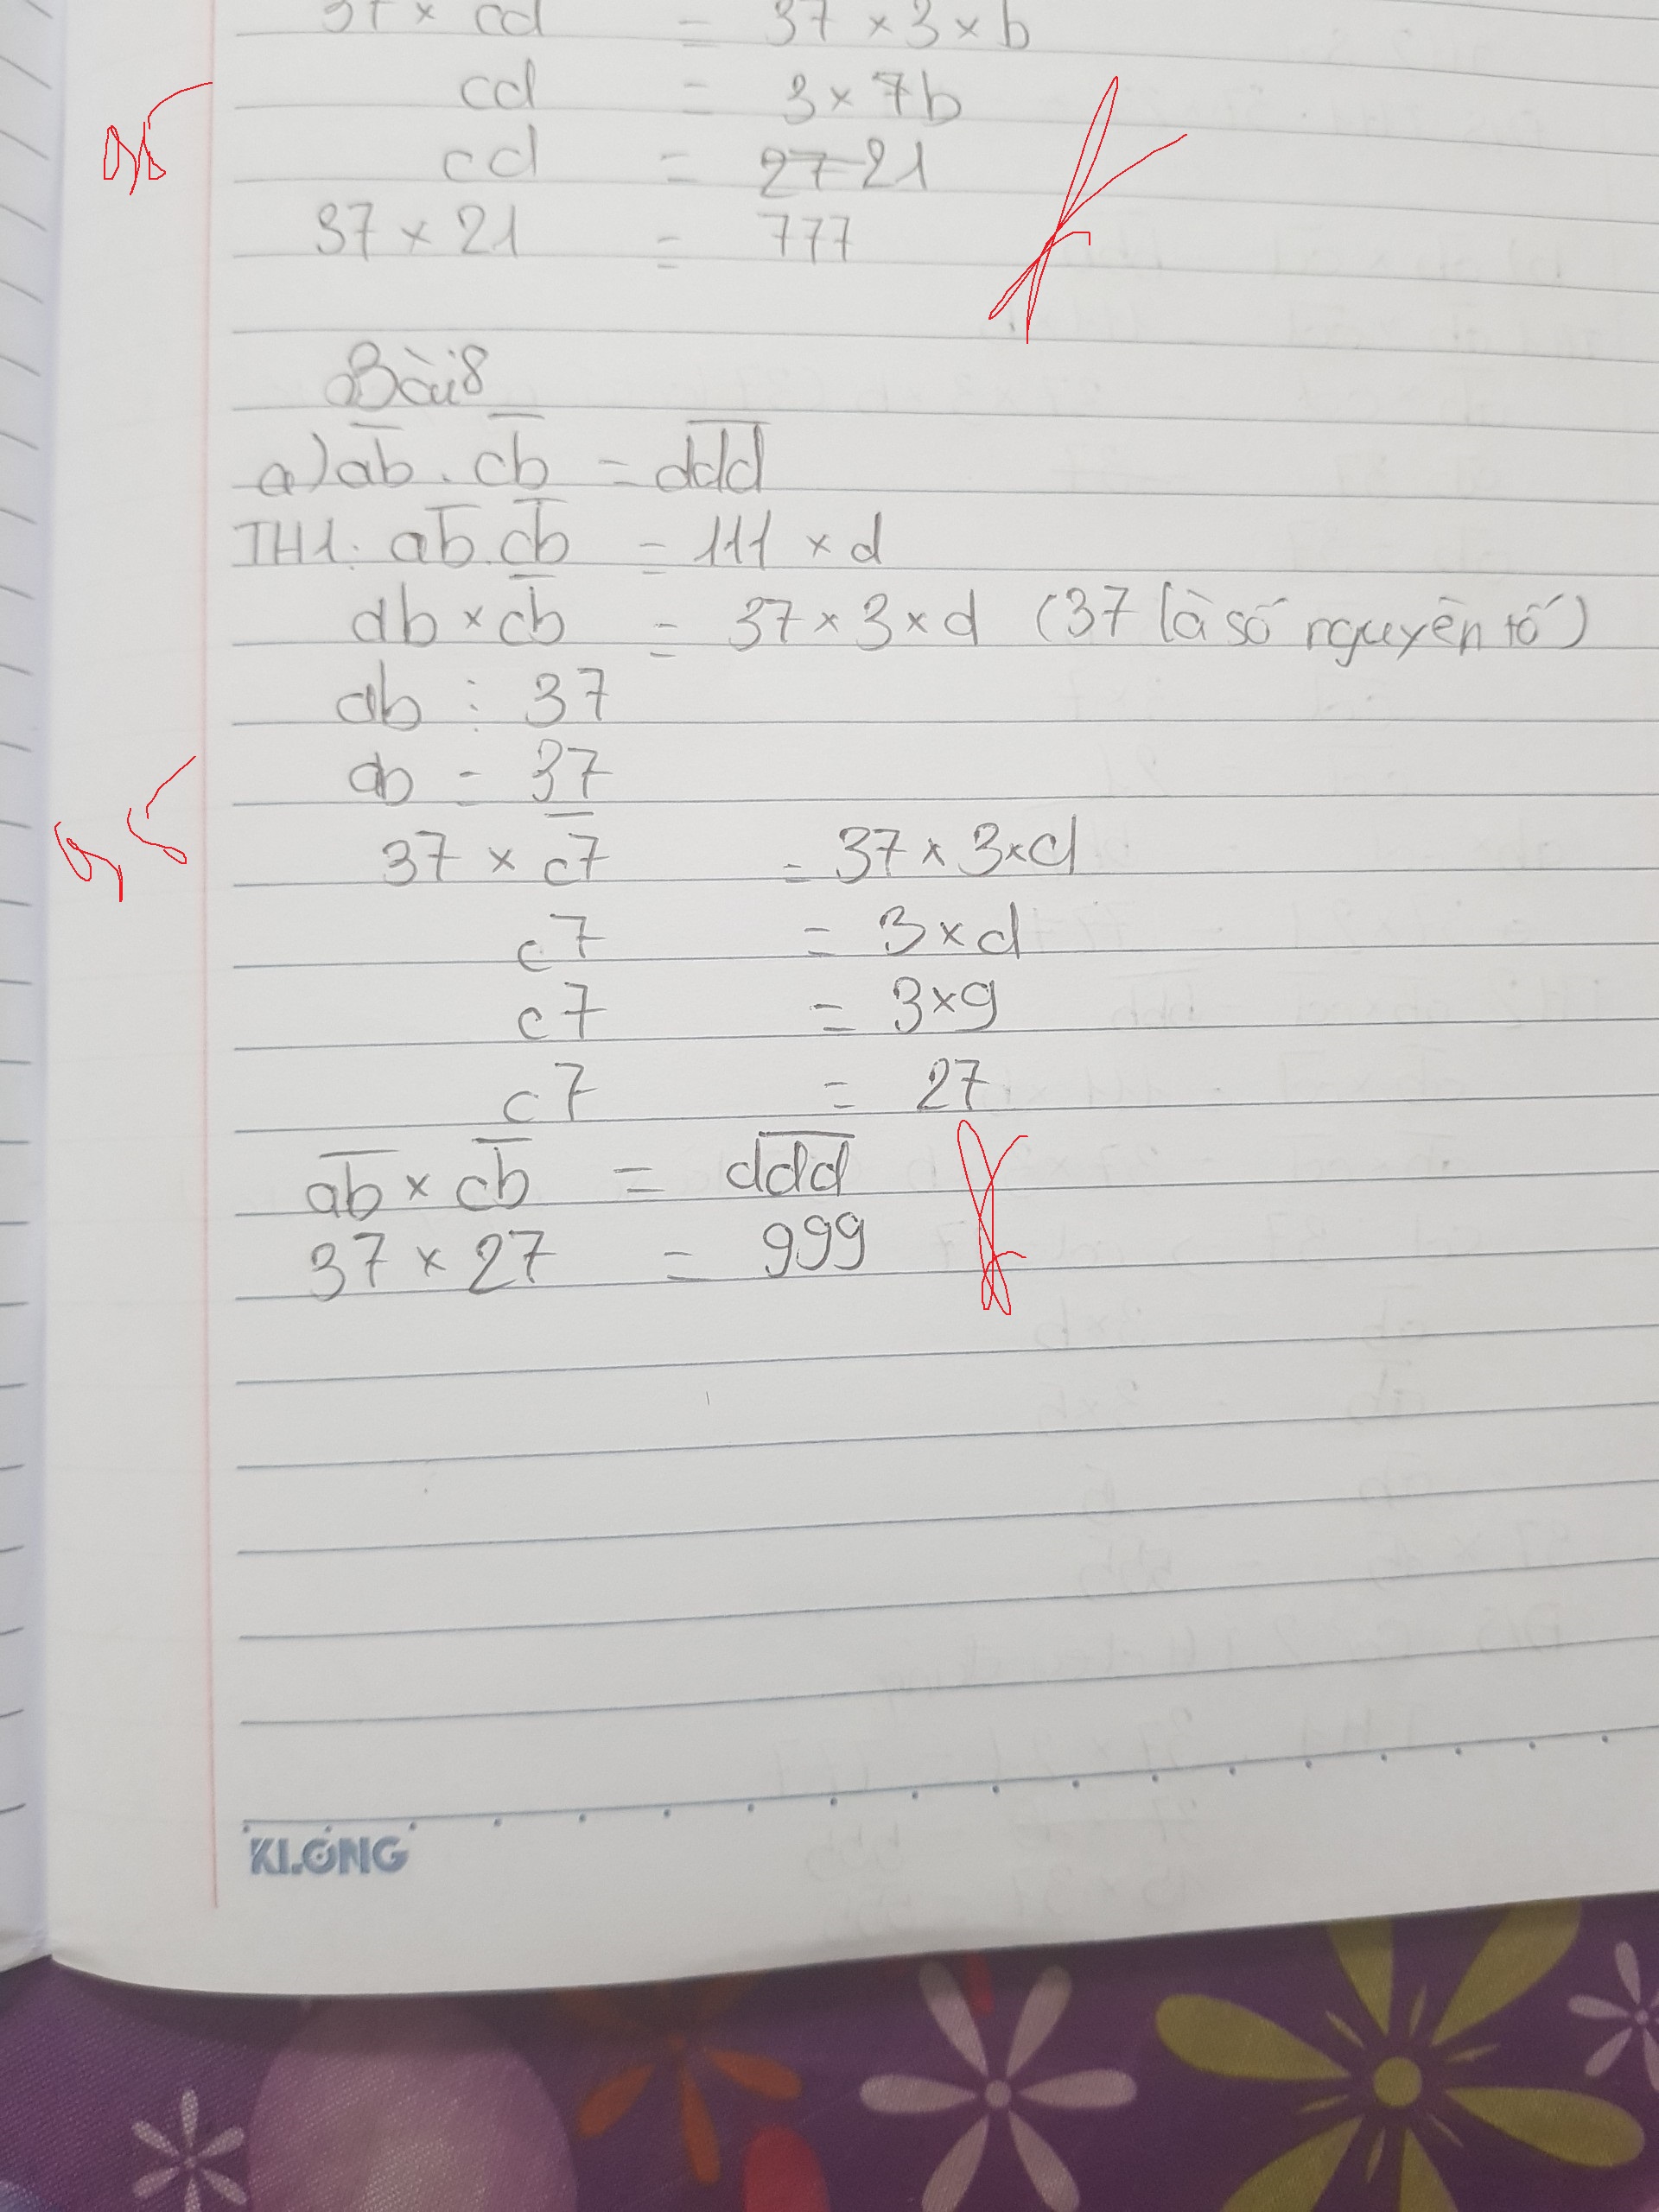 37 × cd = 37 × 3 × b
cd = 3 × 7b
cd = 27 21
37 × 21 = 777
Bài 8
a) ab . cb = ddd
TH1: ab.cb = 111 × d
ab × cb = 37 × 3 × d (37 là số nguyên tố)
ab ⋮ 37
ab = 37
0,5
37 × c7 = 37 × 3 × d
c7 = 3 × d
c7 = 3 × 9
c7 = 27
ab × cb = ddd
37 × 27 = 999
KLONG